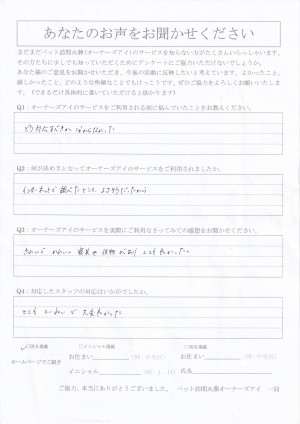 あなたのお声をお聞かせください
まだまだペット訪問火葬(オーナーズアイ)のサービスを知らない方がたくさんいらっしゃいます。
その方たちに少しでも知っていただくためにアンケートにご協力いただけないでしょうか。
あなた様のご意見をお聞かせいただき、今後の活動に反映したいと考えています。よかったこと、
嬉しかったこと、どのような些細なことでもけっこうです。ぜひご協力をよろしくお願いいたします。
(できるだけ具体的に書いていただけると助かります)
Q1:オーナーズアイのサービスをご利用される前に悩んでいたことをお教えください。
どう対応すべきか わからなかった
Q2:何が決め手となってオーナーズアイのサービスをご利用されましたか。
インターネットで 調べたところ、よさそうだったから
Q3:オーナーズアイのサービスを実際にご利用なさってみての感想をお聞かせください。
きれいで かわいい 容器や 供物があり とても良かった
Q4:対応したスタッフの対応はいかがでしたか。
とても ていねいで 大変良かった
□イニシャル掲載
ホームページでご紹介
お住まい (例:中央区) お住まい (例:中央区)
イニシャル 氏名
ご協力、本当にありがとうございました。 ペット訪問火葬オーナーズアイ 一同